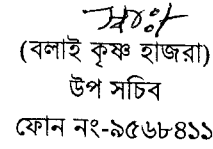 (বলাই কৃষ্ণ হাজরা)
উপ সচিব
ফোন নং-৯৫৬৮৪১১